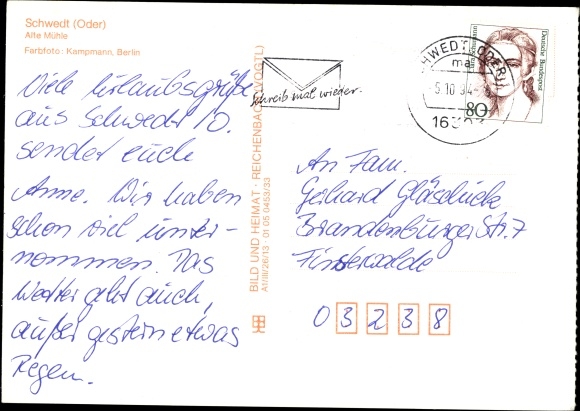 Schwedt (Oder)
Alte Mühle
Farbfoto: Kampmann, Berlin
Viele Urlaubsgrüße
aus Schwedt/O.
sendet euch
Anne. Wir haben
schon viel unter-
nommen. Das
Wetter geht auch,
außer gestern etwas
Regen.
BILD UND HEIMAT · REICHENBACH (VOGTL)
A1/III/26/13 01 05 0453/33
Schreib mal wieder.
SCHWEDT, ODER
ma
5.10.94
16303
Deutsche Bundespost
Clara Schumann
80
An Fam.
Gerhard
Brandenburger Str. 7
Finsterwalde
0 3 2 3 8